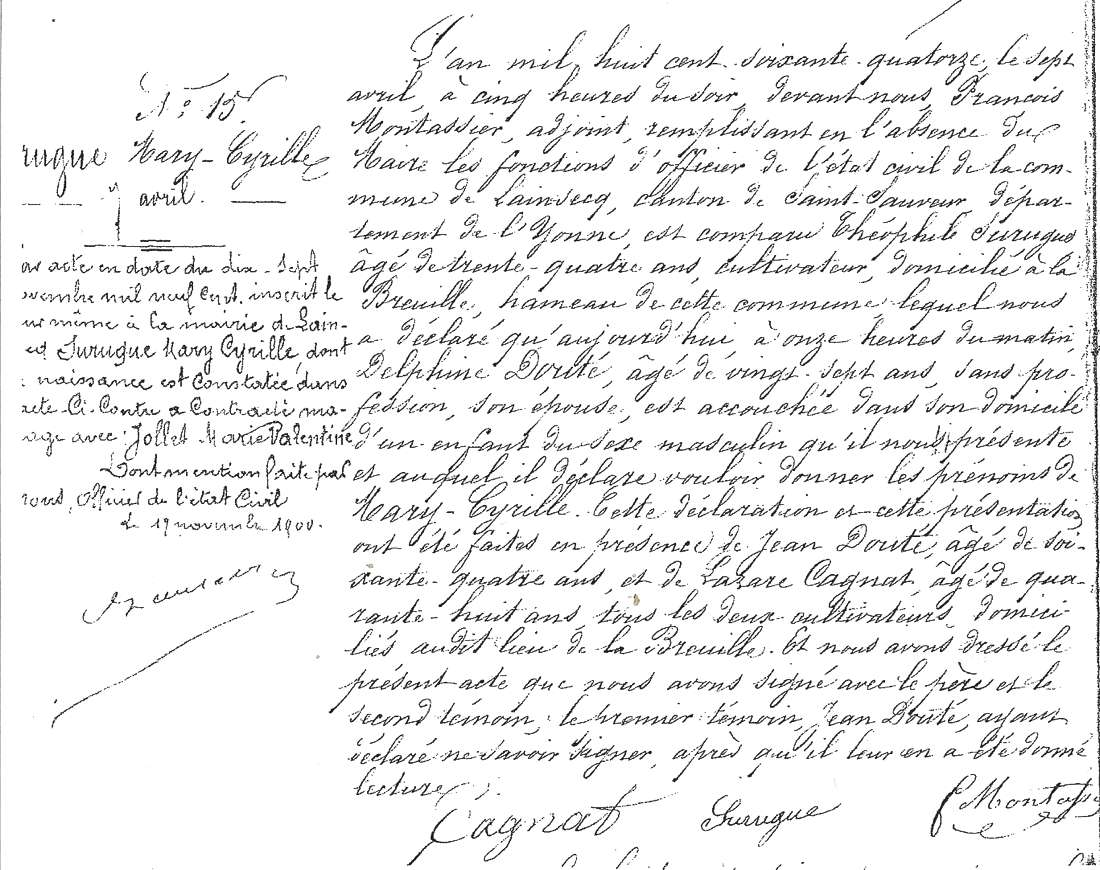 N° 15.
rugue Mary-Cyrille
7 avril.
acte en date du dix-sept
vembre mil neuf cent, inscrit le
même à la mairie de Lain-
Surugue Mary Cyrille, dont
naissance est constatée dans
acte ci-contre a contracté ma-
age avec Jollet Marie Valentine
Dont mention faite par
nous, Officier de l'état civil
Le 19 novembre 1900.
L'an mil huit cent soixante-quatorze, le sept
avril, à cinq heures du soir, devant nous, François
Montassier, adjoint, remplissant en l'absence du
Maire les fonctions d'officier de l'état civil de la com-
mune de Lainsecq, canton de Saint-Sauveur, dépar-
tement de l'Yonne, est comparu Théophile Surugue
âgé de trente-quatre ans, cultivateur, domicilié à la
Breuille, hameau de cette commune, lequel nous
a déclaré qu'aujourd'hui à onze heures du matin,
Delphine Douté, âgé de vingt-sept ans, sans pro-
fession, son épouse, est accouchée dans son domicile
d'un enfant du sexe masculin qu'il nous présente
et auquel il déclare vouloir donner les prénoms de
Mary-Cyrille. Cette déclaration et cette présentation
ont été faites en présence de Jean Douté, âgé de soi-
xante-quatre ans, et de Lazare Cagnat, âgé de qua-
rante-huit ans, tous les deux cultivateurs, domici-
liés audit lieu de la Breuille. Et nous avons dressé le
présent acte que nous avons signé avec le père et le
second témoin; le premier témoin, Jean Douté, ayant
déclaré ne savoir signer, après qu'il leur en a été donné
lecture.
Cagnat Surugue Montass